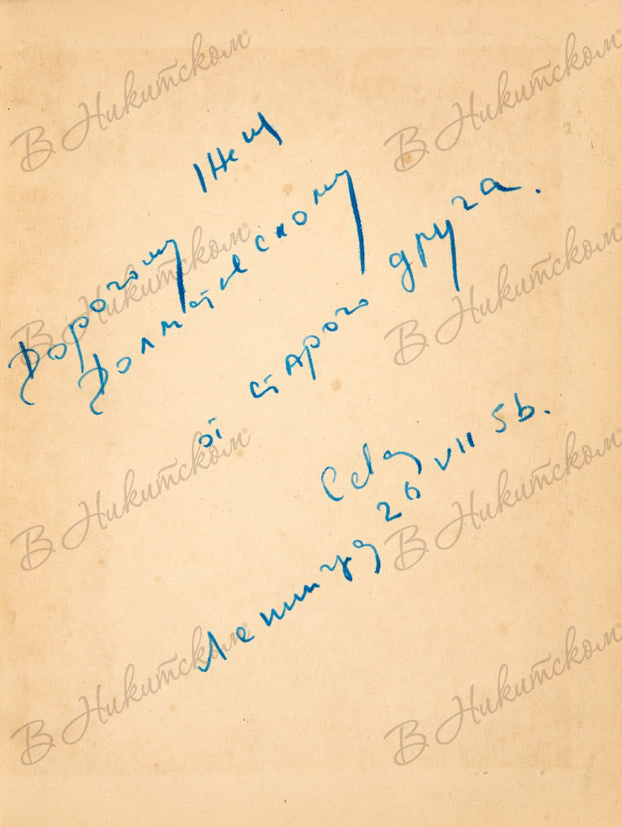 В Никитском
В Никитском
Дорогому Жене
Долматовскому
от старого друга.
В Никитском
В Никитском
26 VII 56.
Ленинград
В Никитском
В Никитском
В Никитском
В Никитском